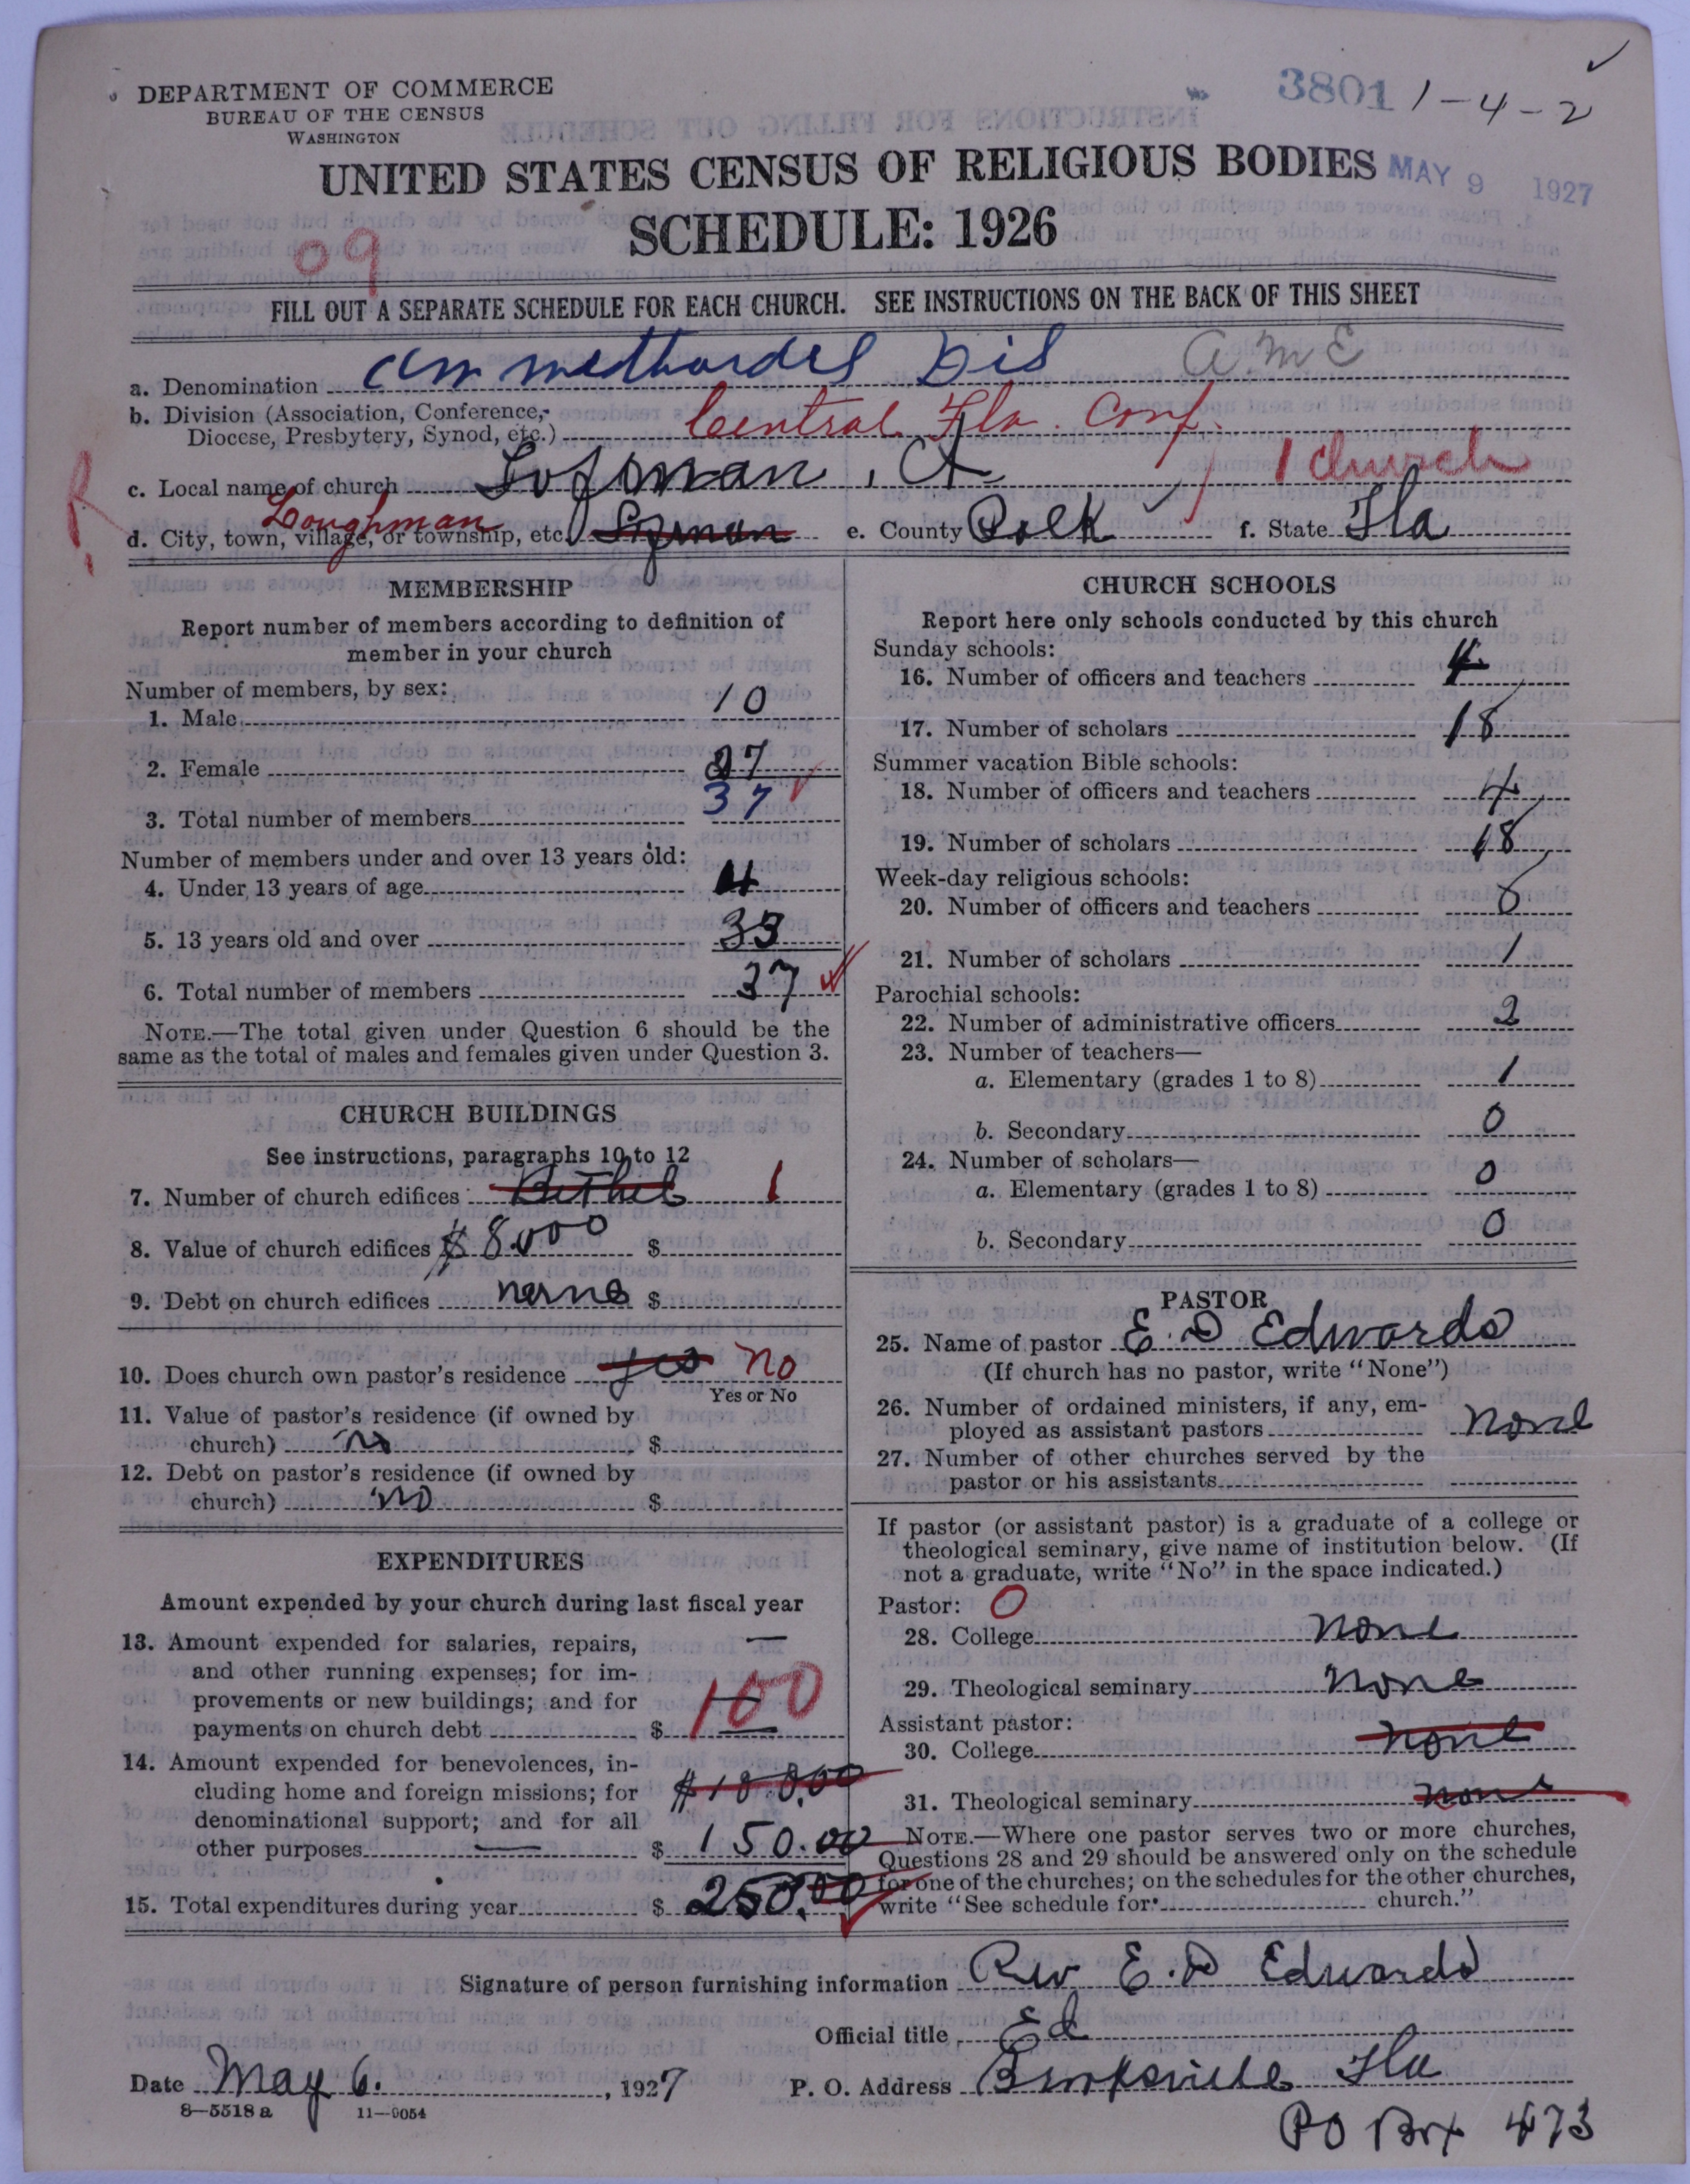 DEPARTMENT OF COMMERCE
BUREAU OF THE CENSUS
WASHINGTON
3801 1-4-2
UNITED STATES CENSUS OF RELIGIOUS BODIES
MAY 9 1927
SCHEDULE: 1926
09
FILL OUT A SEPARATE SCHEDULE FOR EACH CHURCH. SEE INSTRUCTIONS ON THE BACK OF THIS SHEET
a. Denomination A M E
b. Division (Association, Conference, Diocese, Presbytery, Synod, etc.) Central Fla. Conf.
c. Local name of church 1 church
d. City, town, village, or township, etc. Loughman e. County Polk f. State Fla
MEMBERSHIP
Report number of members according to definition of
member in your church
Number of members, by sex:
1. Male 10
2. Female 27
3. Total number of members 37
Number of members under and over 13 years old:
4. Under 13 years of age 4
5. 13 years old and over 33
6. Total number of members 37
NOTE.—The total given under Question 6 should be the
same as the total of males and females given under Question 3.
CHURCH BUILDINGS
See instructions, paragraphs 10 to 12
7. Number of church edifices Bethel 1
8. Value of church edifices $8.000 $
9. Debt on church edifices $
10. Does church own pastor's residence yes no
Yes or No
11. Value of pastor's residence (if owned by
church) no $
12. Debt on pastor's residence (if owned by
church) no $
EXPENDITURES
Amount expended by your church during last fiscal year
13. Amount expended for salaries, repairs,
and other running expenses; for im-
provements or new buildings; and for
payments on church debt $ 100
14. Amount expended for benevolences, in-
cluding home and foreign missions; for
denominational support; and for all
other purposes $ 150.00
15. Total expenditures during year $ 250.00
CHURCH SCHOOLS
Report here only schools conducted by this church
Sunday schools:
16. Number of officers and teachers 4
17. Number of scholars 18
Summer vacation Bible schools:
18. Number of officers and teachers 4
19. Number of scholars 18
Week-day religious schools:
20. Number of officers and teachers 8
21. Number of scholars 1
Parochial schools:
22. Number of administrative officers 2
23. Number of teachers—
a. Elementary (grades 1 to 8) 1
b. Secondary 0
24. Number of scholars—
a. Elementary (grades 1 to 8) 0
b. Secondary 0
PASTOR
25. Name of pastor E. D Edwards
(If church has no pastor, write "None")
26. Number of ordained ministers, if any, em-
ployed as assistant pastors None
27. Number of other churches served by the
pastor or his assistants
If pastor (or assistant pastor) is a graduate of a college or
theological seminary, give name of institution below. (If
not a graduate, write "No" in the space indicated.)
Pastor: 0
28. College none
29. Theological seminary none
Assistant pastor:
30. College none
31. Theological seminary none
NOTE.—Where one pastor serves two or more churches,
Questions 28 and 29 should be answered only on the schedule
for one of the churches; on the schedules for the other churches,
write "See schedule for church."
Signature of person furnishing information Rev E. D Edwards
Official title Ed
Date May 6. , 1927 P. O. Address Brooksville Fla
8—5518 a 11—9054
PO Box 473